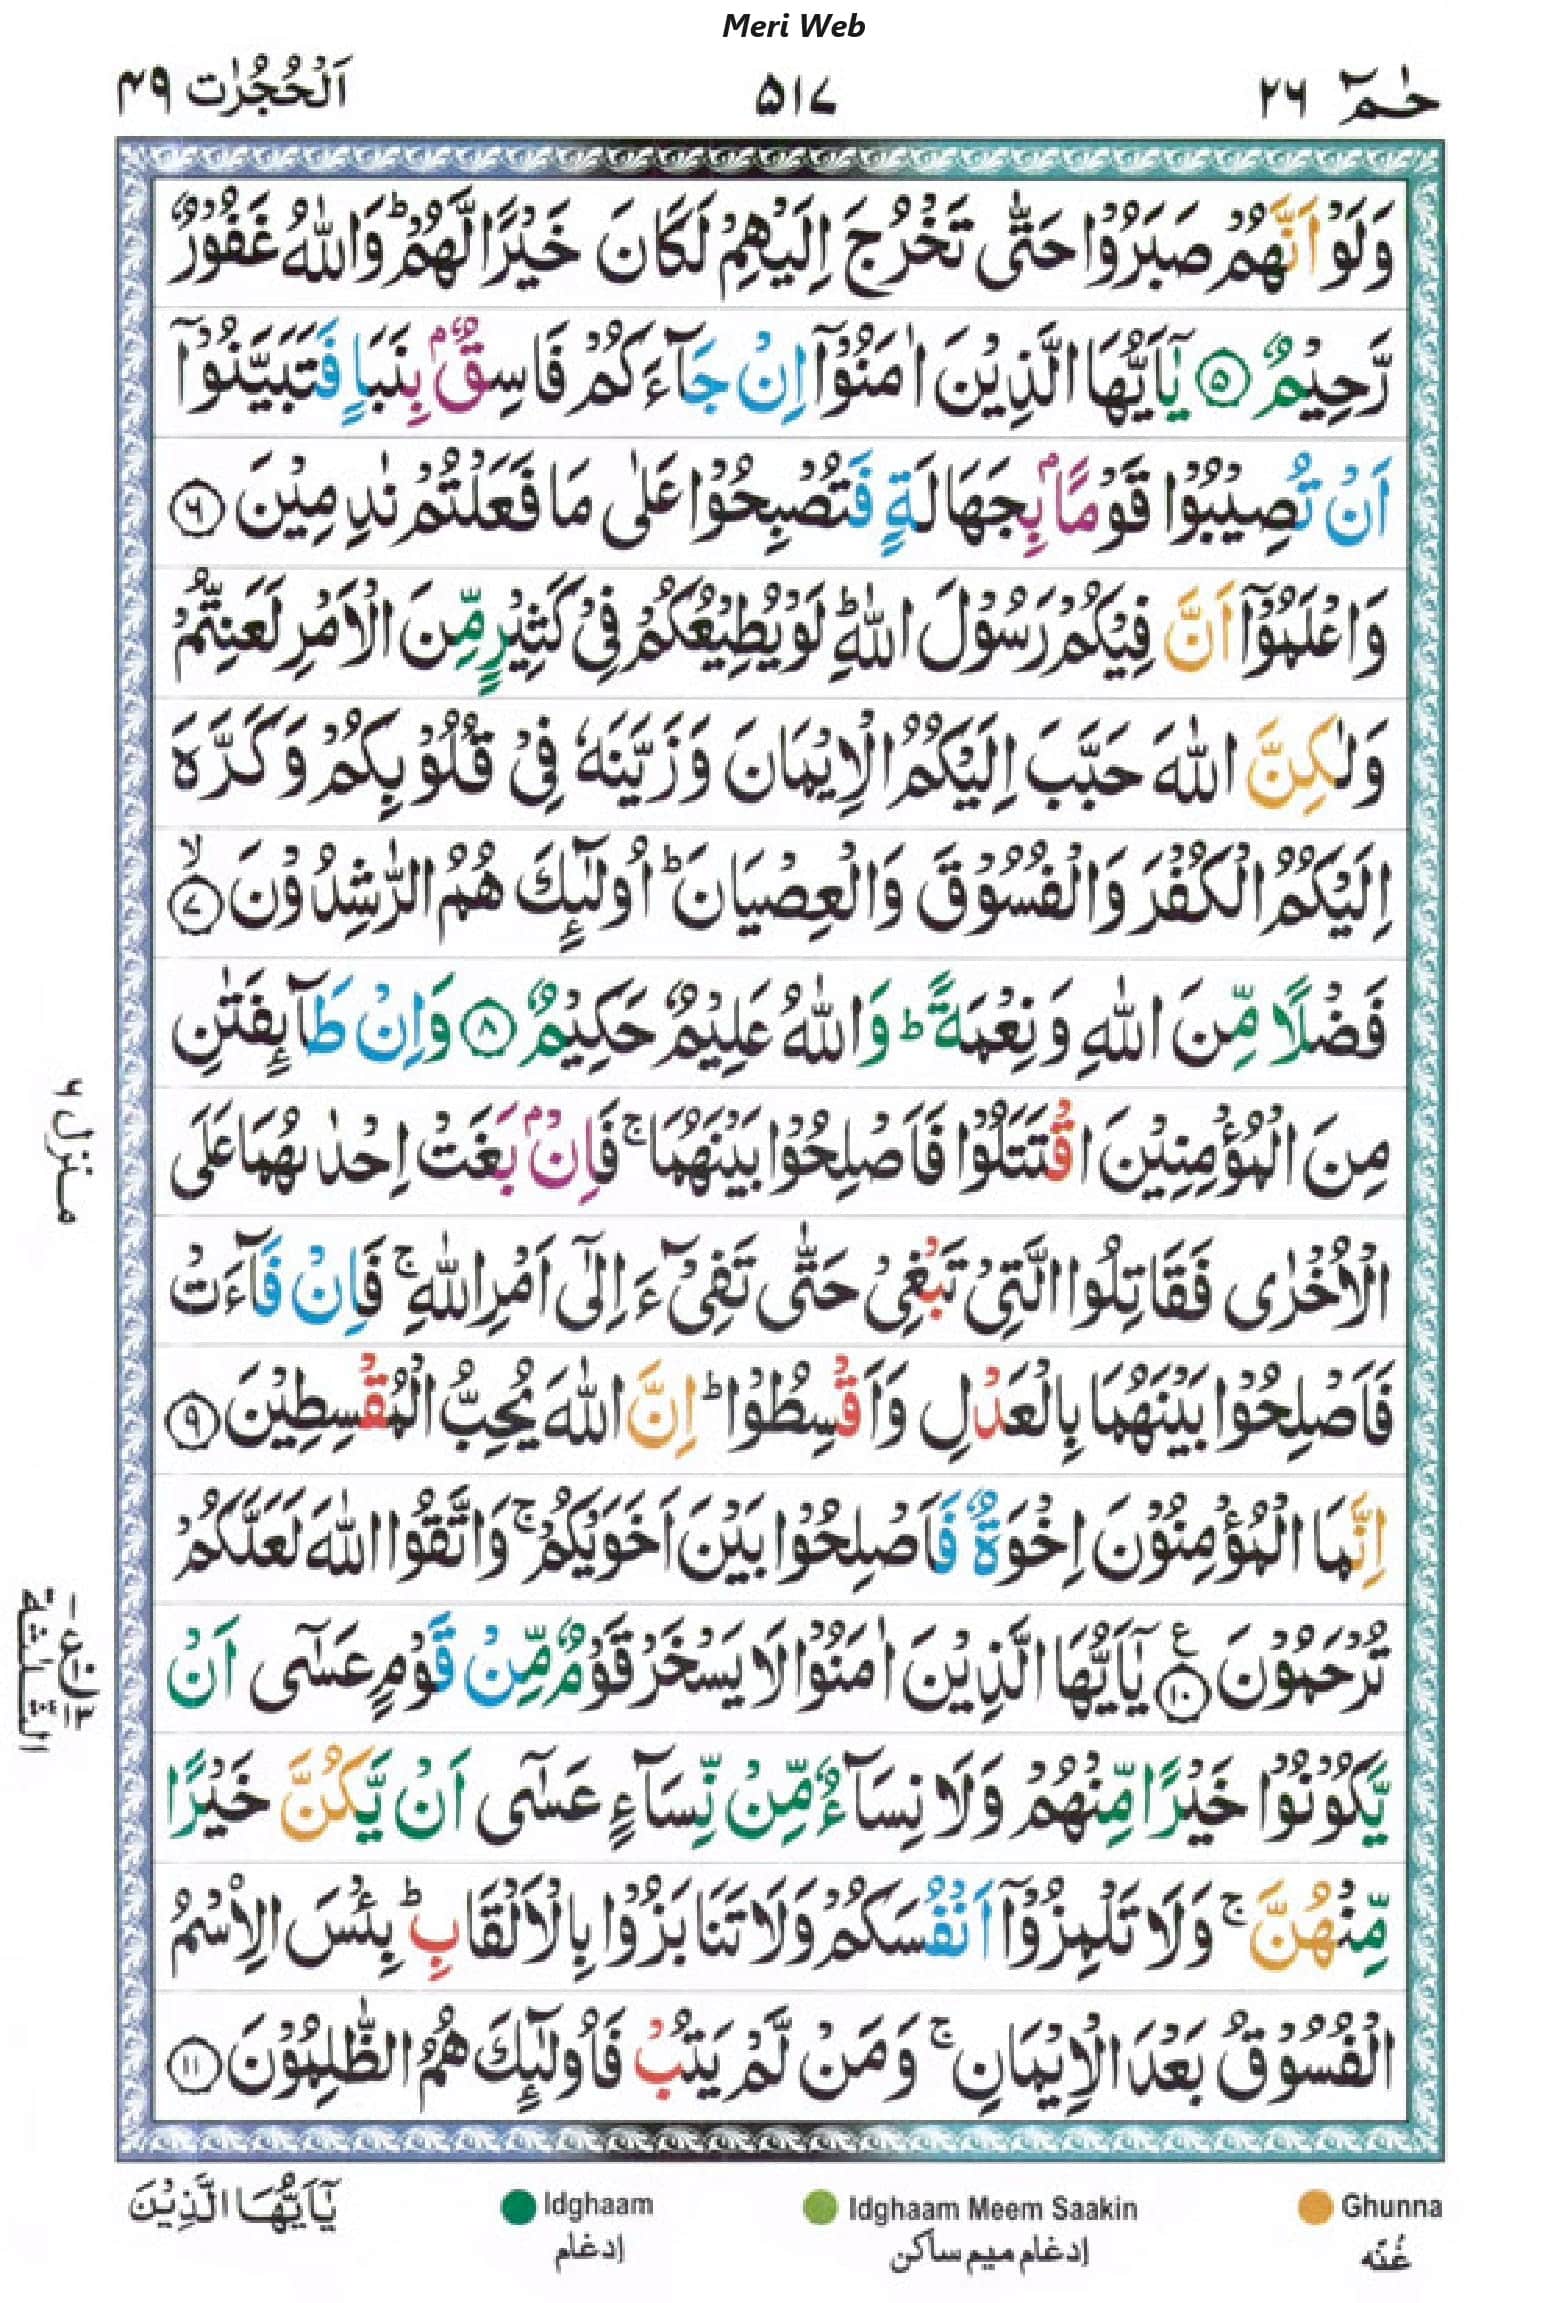 Meri Web
حٰمٓ ۲۶
۵۱۷
اَلْحُجُرٰت ۴۹
وَلَوْ اَنَّهُمْ صَبَرُوْا حَتّٰى تَخْرُجَ اِلَيْهِمْ لَكَانَ خَيْرًا لَّهُمْ ؕ وَاللّٰهُ غَفُوْرٌ
رَّحِيْمٌ ﴿۵﴾ يٰۤاَيُّهَا الَّذِيْنَ اٰمَنُوْۤا اِنْ جَآءَكُمْ فَاسِقٌۢ بِنَبَاٍ فَتَبَيَّنُوْۤا
اَنْ تُصِيْبُوْا قَوْمًاۢ بِجَهَالَةٍ فَتُصْبِحُوْا عَلٰى مَا فَعَلْتُمْ نٰدِمِيْنَ ﴿۶﴾
وَاعْلَمُوْۤا اَنَّ فِيْكُمْ رَسُوْلَ اللّٰهِ ؕ لَوْ يُطِيْعُكُمْ فِيْ كَثِيْرٍ مِّنَ الْاَمْرِ لَعَنِتُّمْ
وَلٰكِنَّ اللّٰهَ حَبَّبَ اِلَيْكُمُ الْاِيْمَانَ وَزَيَّنَهٗ فِيْ قُلُوْبِكُمْ وَكَرَّهَ
اِلَيْكُمُ الْكُفْرَ وَالْفُسُوْقَ وَالْعِصْيَانَ ؕ اُولٰٓئِكَ هُمُ الرّٰشِدُوْنَ ۙ﴿۷﴾
فَضْلًا مِّنَ اللّٰهِ وَنِعْمَةً ؕ وَاللّٰهُ عَلِيْمٌ حَكِيْمٌ ﴿۸﴾ وَاِنْ طَآئِفَتٰنِ
مِنَ الْمُؤْمِنِيْنَ اقْتَتَلُوْا فَاَصْلِحُوْا بَيْنَهُمَا ۚ فَاِنْۢ بَغَتْ اِحْدٰىهُمَا عَلَى
الْاُخْرٰى فَقَاتِلُوا الَّتِيْ تَبْغِيْ حَتّٰى تَفِيْٓءَ اِلٰۤى اَمْرِ اللّٰهِ ۚ فَاِنْ فَآءَتْ
فَاَصْلِحُوْا بَيْنَهُمَا بِالْعَدْلِ وَاَقْسِطُوْا ؕ اِنَّ اللّٰهَ يُحِبُّ الْمُقْسِطِيْنَ ﴿۹﴾
اِنَّمَا الْمُؤْمِنُوْنَ اِخْوَةٌ فَاَصْلِحُوْا بَيْنَ اَخَوَيْكُمْ ۚ وَاتَّقُوا اللّٰهَ لَعَلَّكُمْ
تُرْحَمُوْنَ ﴿۱۰﴾ ع يٰۤاَيُّهَا الَّذِيْنَ اٰمَنُوْا لَا يَسْخَرْ قَوْمٌ مِّنْ قَوْمٍ عَسٰۤى اَنْ
يَّكُوْنُوْا خَيْرًا مِّنْهُمْ وَلَا نِسَآءٌ مِّنْ نِّسَآءٍ عَسٰۤى اَنْ يَّكُنَّ خَيْرًا
مِّنْهُنَّ ۚ وَلَا تَلْمِزُوْۤا اَنْفُسَكُمْ وَلَا تَنَابَزُوْا بِالْاَلْقَابِ ؕ بِئْسَ الِاسْمُ
الْفُسُوْقُ بَعْدَ الْاِيْمَانِ ۚ وَمَنْ لَّمْ يَتُبْ فَاُولٰٓئِكَ هُمُ الظّٰلِمُوْنَ ﴿۱۱﴾
منزل ۶
الثلٰثة
يٰۤاَيُّهَا الَّذِيْنَ
Idghaam
إدغام
Idghaam Meem Saakin
إدغام میم ساکن
Ghunna
غُنّه